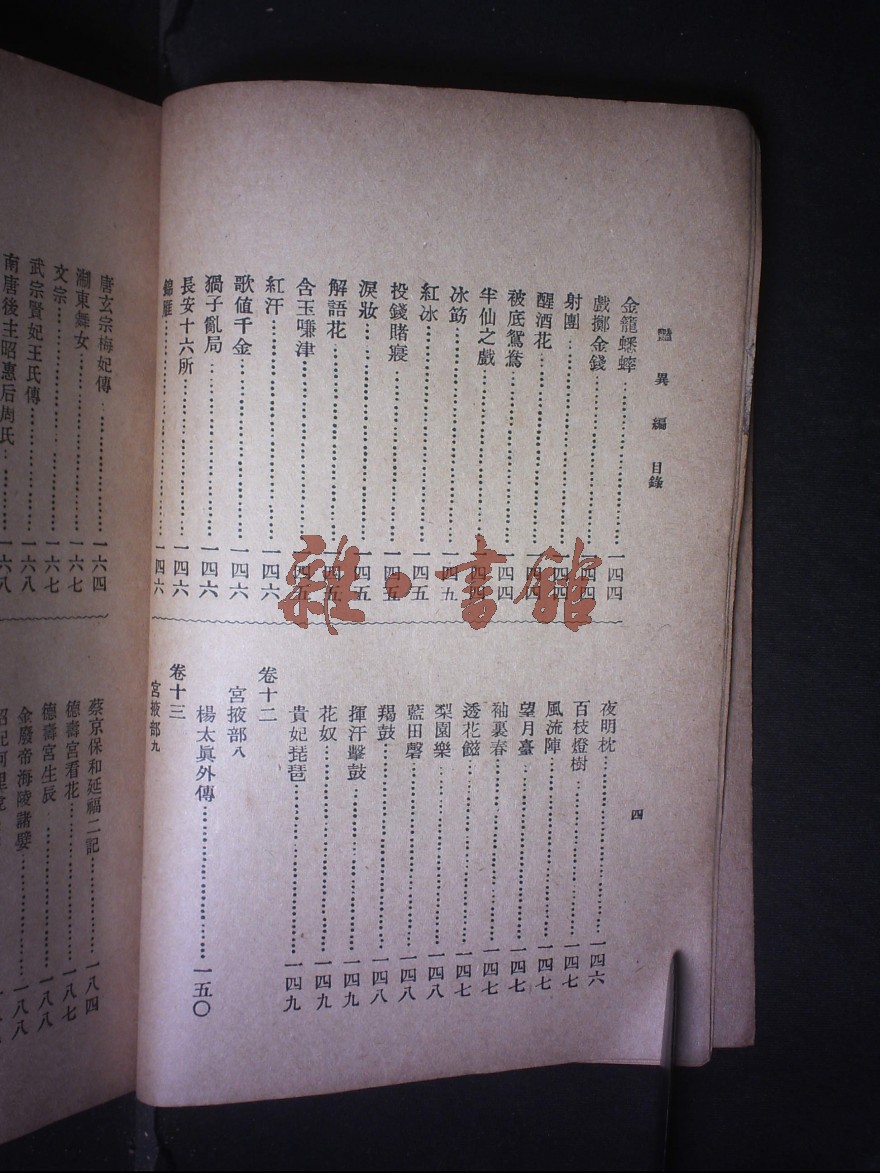 艷異編 目錄
四
金籠蟋蟀 一四四
戲擲金錢 一四四
射團 一四四
醒酒花 一四四
被底鴛鴦 一四四
半仙之戲 一四四
冰筯 一四五
紅冰 一四五
投錢賭寢 一四五
淚妝 一四五
解語花 一四五
含玉嚥津 一四五
紅汗 一四六
歌值千金 一四六
猧子亂局 一四六
長安十六所 一四六
錦雁 一四六
夜明枕 一四六
百枝燈樹 一四七
風流陣 一四七
望月臺 一四七
袖裏春 一四七
透花餤 一四七
梨園樂 一四八
藍田磬 一四八
羯鼓 一四八
揮汗擊鼓 一四九
花奴 一四九
貴妃琵琶 一四九
卷十二
宮掖部八
楊太眞外傳 一五〇
卷十三
宮掖部九
唐玄宗梅妃傳 一六四
淛東舞女 一六七
文宗 一六七
武宗賢妃王氏傳 一六八
南唐後主昭惠后周氏 一六八
蔡京保和延福二記 一八四
德壽宮看花 一八七
德壽宮生辰 一八八
金廢帝海陵諸嬖 一八八
雜·書館